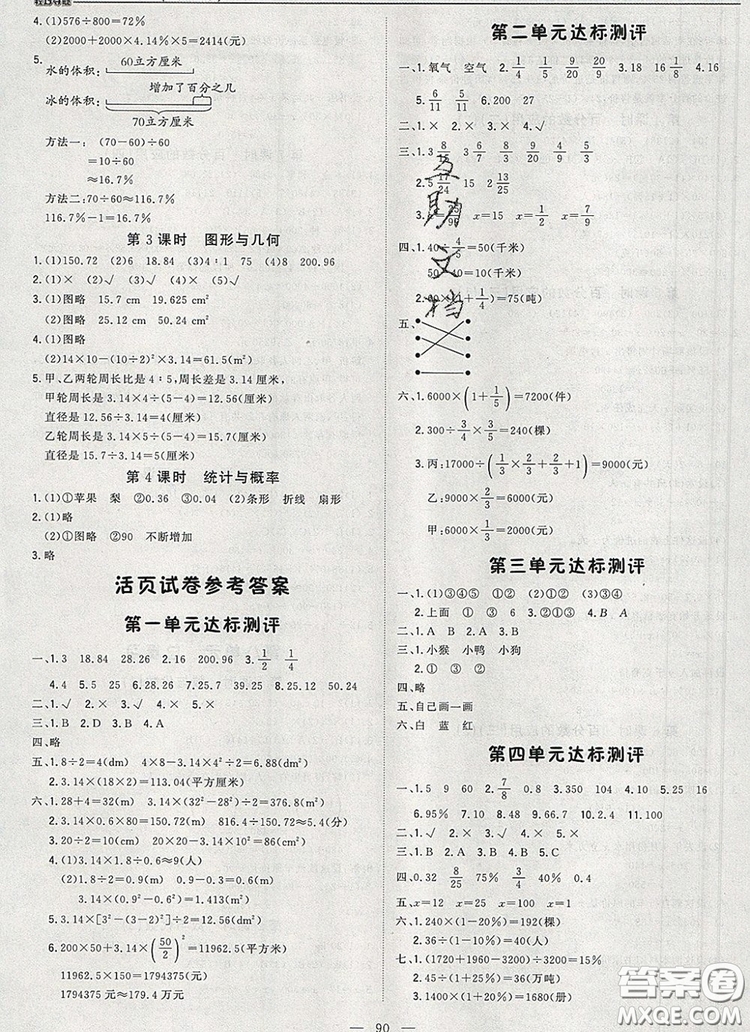 4.(1)576÷800=72%
(2)2000+2000×4.14%×5=2414(元)
5.
60立方厘米
水的体积:
增加了百分之几
冰的体积:
70立方厘米
方法一: (70-60)÷60
=10÷60
≈16.7%
方法二:70÷60≈116.7%
116.7%-1=16.7%
第3课时 图形与几何
1.(1)150.72 (2)6 18.84 (3)4∶1 75 (4)8 200.96
2.(1)× (2)√ (3)√ (4)√ (5)×
3.(1)图略 15.7 cm 19.625 cm²
(2)图略 25.12 cm 50.24 cm²
4.(1)图略
(2)14×10-(10÷2)²×3.14=61.5(m²)
5.甲、乙两轮周长比是4∶5,周长差是3.14厘米
甲轮周长是3.14×4÷(5-4)=12.56(厘米)
直径是12.56÷3.14=4(厘米)
乙轮周长是3.14×5÷(5-4)=15.7(厘米)
直径是15.7÷3.14=5(厘米)
第4课时 统计与概率
1.(1)①苹果 梨 ②0.36 ③0.04 (2)条形 折线 扇形
2.(1)略
(2)①图略 ②90 不断增加
3.略
活页试卷参考答案
第一单元达标测评
一、1.3 18.84 28.26 2.16 200.96 3.1/2 1/4
4.4 5.5 6.28.26 7.25.7 8.28.26 9.25.12 10.50.24
二、1.√ 2.× 3.× 4.√ 5.×
三、1.B 2.D 3.B 4.A
四、略
五、1.8÷2=4(dm) 4×8-3.14×4²÷2=6.88(dm²)
2.3.14×(18×2)=113.04(平方厘米)
六、1.28+4=32(m) 3.14×(32²-28²)÷2=376.8(m²)
2.3.14×0.6×80=150.72(m) 816.4÷150.72≈5.4(分)
3.20÷2=10(m) 20×20-3.14×10²÷2=243(m²)
4.(1)3.14×1.8÷0.6≈9(人)
(2)1.8÷2=0.9(m) 0.9-0.3=0.6(m)
3.14×(0.9²-0.6²)=1.413(m²)
5.3.14×[3²-(3-2)²]÷2=12.56(m²)
6.200×50+3.14×(50/2)²=11962.5(平方米)
11962.5×150=1794375(元)
1794375元≈179.4万元
第二单元达标测评
一、1.氧气 空气 2.1/4 1/5 1/20 3.18 16 1/4 4.16
5.6/11 5/11 6.200 27
二、1.× 2.× 3.× 4.√
互助文档
四、1.40÷4/5=50(千米)
五、
六、1.6000×(1+1/5)=7200(件)
2.300÷3/4×3/5=240(棵)
3.丙:17000÷(1/3×2/3+2/3+1)=9000(元)
乙:9000×2/3=6000(元)
甲:6000×1/3=2000(元)
第三单元达标测评
一、1.(1)③④⑤ ①② (2)①③④⑤ ②
2.上面 ① ③ 6 3.②①③ 4.B A
二、1.A 2.C 3.C
三、1.小猴 小鸭 小狗
2.① ③ ②
四、略
五、自己画一画
六、白 蓝 红
第四单元达标测评
一、1.5 9 60 2.7/8 3.20 4.10 5.25 16
6.95% 7.10 8.9 9.66.7 10.2 11.100
二、1.√ 2.× 3.√ 4.× 5.×
三、1.B 2.A 3.B 4.B 5.C
四、0.32 8/25 75% 3/4 40% 0.4
五、x=12 x=25 x=100
六、1.240×(1-20%)=192(棵)
2.36÷(1-10%)=40(人)
七、1.(1720+1960-3200)÷3200=15%
2.45÷(1-20%)=36(万吨)
3.1400×(1+20%)=1680(册)
90
答案圈
MXQE.COM